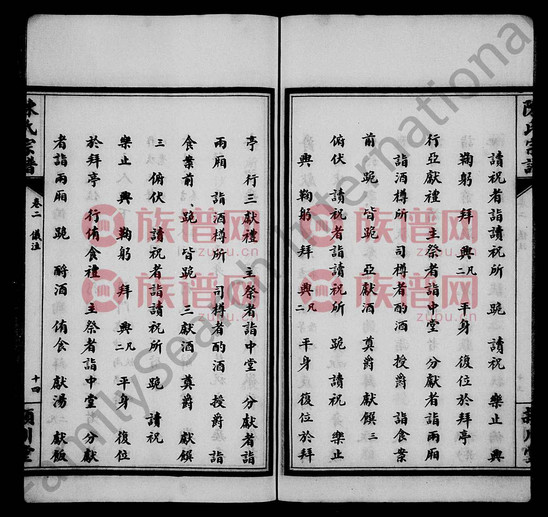 陳氏宗譜
讀祝者詣讀祝所 跪 讀祝 樂止 興
鞠躬 拜 興 凡二 平身 復位於拜亭
行亞獻禮 主祭者詣中堂 分獻者詣兩廂
詣酒樽所 司樽者酌酒 授爵 詣食案
前 跪 皆跪 亞獻酒 奠爵 獻饌 三
俯伏 讀祝者詣讀祝所 跪 讀祝 樂止
興 鞠躬 拜 興 凡二 平身 復位於拜
亭 行三獻禮 主祭者詣中堂 分獻者詣
兩廂 詣酒樽所 司樽者酌酒 授爵 詣
食案前 跪 皆跪 三獻酒 奠爵 獻饌
三 俯伏 讀祝者詣讀祝所 跪 讀祝
樂止 興 鞠躬 拜 興 凡二 平身 復位
於拜亭 行侑食禮 主祭者詣中堂 分獻
者詣兩廂 跪 酹酒 侑食 獻湯 獻飯
氏宗譜
卷二 儀注
十四
川堂
族谱网
www.zupu.cn
FamilySearch International